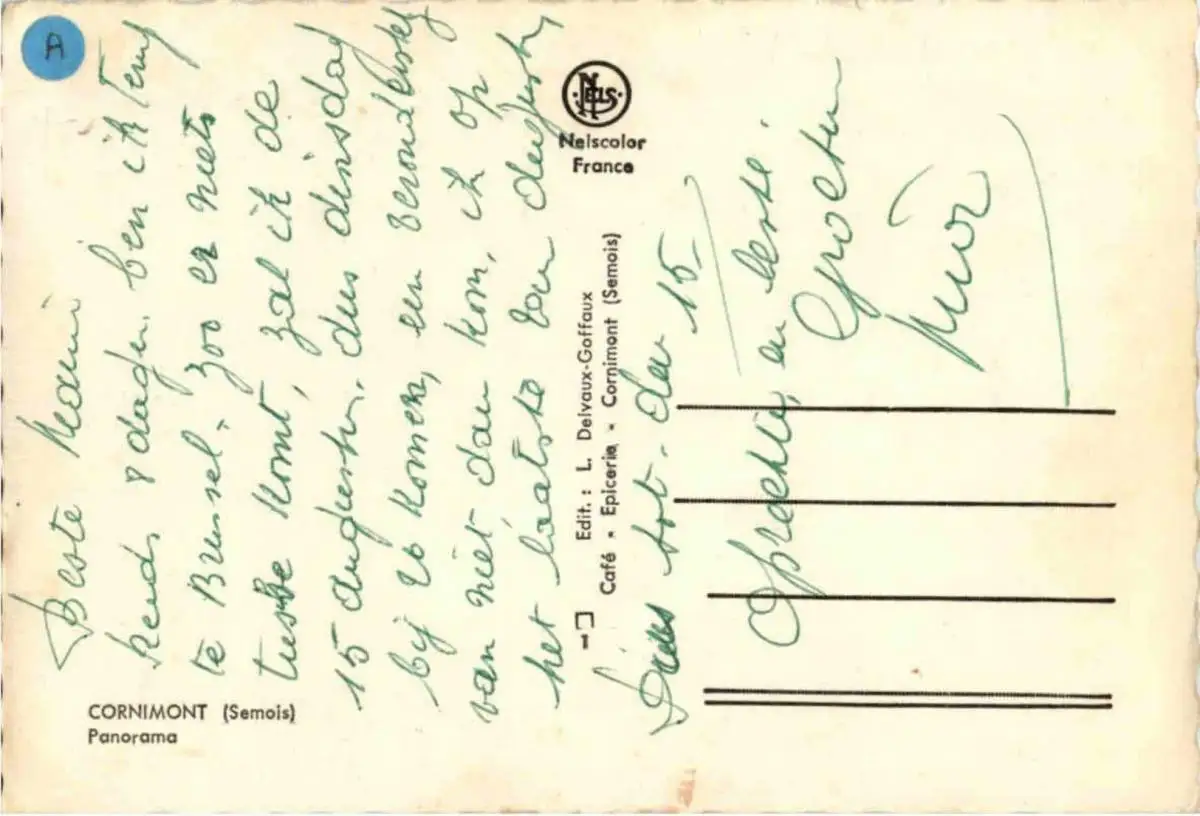 D
Beste Mami
kends 8 dagen ben ik terug
te Brussel, zoo er niets
tusse komt, zal ik de
15 augusti, dus dinsdag
bij U komen, en
van niet dan kom, ik op
het laatste van augusti,
Dries tot den 15
en beste
Groeten
NELS
Nelscolor
France
1
Edit.: L. Delvaux-Goffaux
Café - Epicerie - Cornimont (Semois)
CORNIMONT (Semois)
Panorama